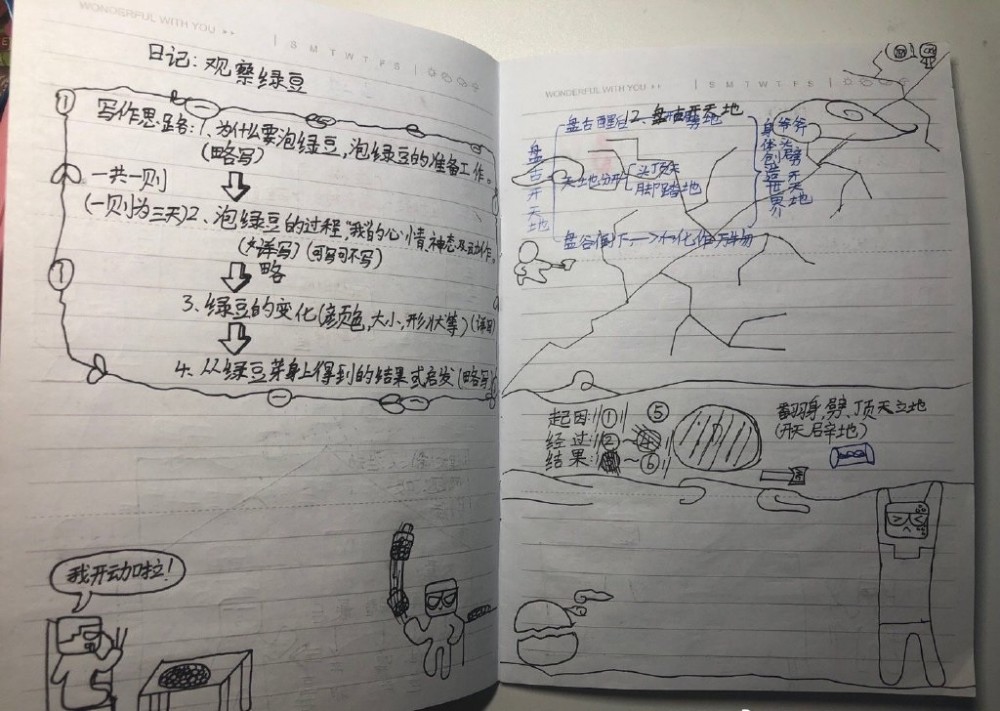 WONDERFUL WITH YOU >>
S M T W T F S
日记：观察绿豆
写作思路：1、为什么要泡绿豆，泡绿豆的准备工作。
(略写)
一共一则
(一则为三天)2、泡绿豆的过程，"我"的心情，神态及动作。
(详写) (可写可不写)
略
3、绿豆的变化(颜色，大小，形状等)(详写)
4、从绿豆芽身上得到的结果或启发(略写)
我开动啦！
WONDERFUL WITH YOU >>
S M T W T F S
盘古开天地
盘古醒后
2、盘古开天地
天地分开
头顶天
脚踏地
盘古倒下—>化作万物
身体创造世界
斧头劈天地
起因：①
⑤
经过：②~
结果：~⑥
翻身，劈、顶天立地
(开天辟地)